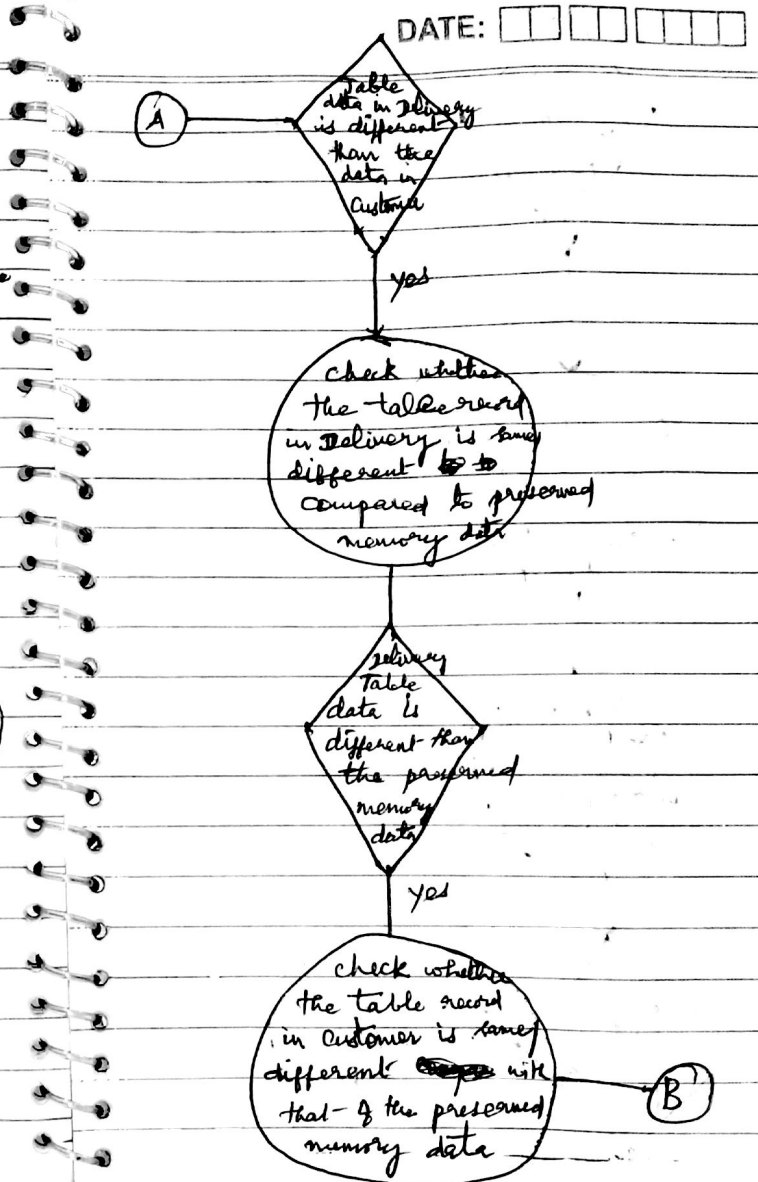 DATE:
A
Table
data in Delivery
is different
than the
data in
Customer
yes
check whether
the table record
in Delivery is same/
different
compared to preserved
memory data
Delivery
Table
data is
different than
the preserved
memory
data
yes
check whether
the table record
in customer is same/
different with
that of the preserved
memory data
B